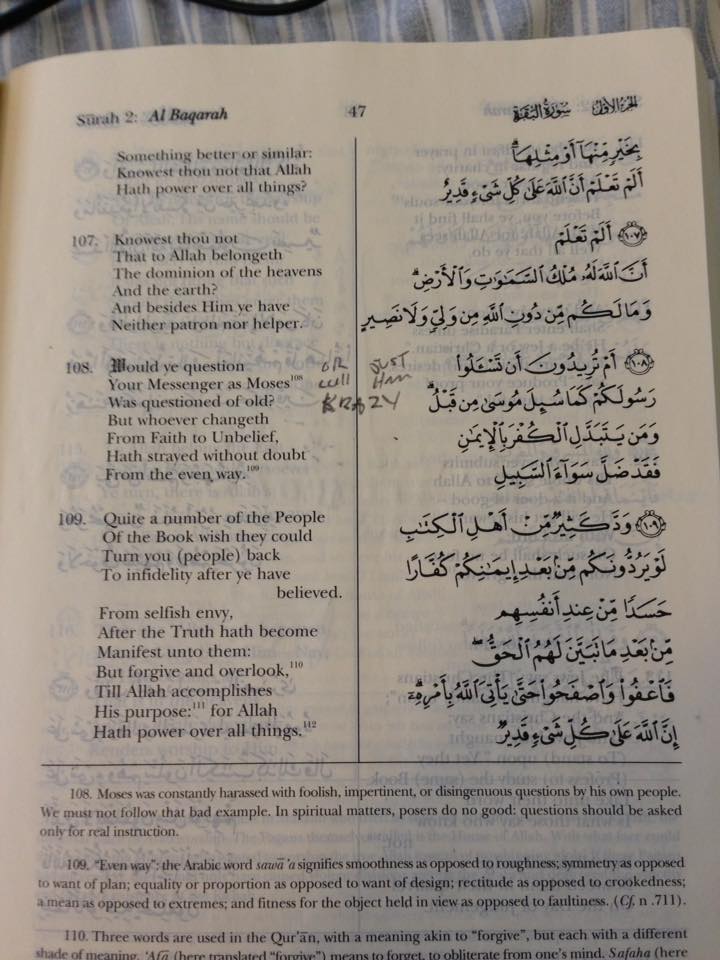 Sūrah 2: Al Baqarah
47
الجزء الأول سورة البقرة
Something better or similar:
Knowest thou not that Allah
Hath power over all things?
107. Knowest thou not
That to Allah belongeth
The dominion of the heavens
And the earth?
And besides Him ye have
Neither patron nor helper.
108. Would ye question
Your Messenger as Moses¹⁰⁸
Was questioned of old?
But whoever changeth
From Faith to Unbelief,
Hath strayed without doubt
From the even way.¹⁰⁹
109. Quite a number of the People
Of the Book wish they could
Turn you (people) back
To infidelity after ye have
believed.
From selfish envy,
After the Truth hath become
Manifest unto them:
But forgive and overlook,¹¹⁰
Till Allah accomplishes
His purpose:¹¹¹ for Allah
Hath power over all things.¹¹²
OR JUST
CALL HIM
KRAZY
بِخَيْرٍ مِّنْهَآ أَوْ مِثْلِهَآ
أَلَمْ تَعْلَمْ أَنَّ ٱللَّهَ عَلَىٰ كُلِّ شَىْءٍ قَدِيرٌ
﴿١٠٧﴾ أَلَمْ تَعْلَمْ
أَنَّ ٱللَّهَ لَهُۥ مُلْكُ ٱلسَّمَٰوَٰتِ وَٱلْأَرْضِ
وَمَا لَكُم مِّن دُونِ ٱللَّهِ مِن وَلِىٍّ وَلَا نَصِيرٍ
﴿١٠٨﴾ أَمْ تُرِيدُونَ أَن تَسْـَٔلُوا۟
رَسُولَكُمْ كَمَا سُئِلَ مُوسَىٰ مِن قَبْلُ
وَمَن يَتَبَدَّلِ ٱلْكُفْرَ بِٱلْإِيمَٰنِ
فَقَدْ ضَلَّ سَوَآءَ ٱلسَّبِيلِ
﴿١٠٩﴾ وَدَّ كَثِيرٌ مِّنْ أَهْلِ ٱلْكِتَٰبِ
لَوْ يَرُدُّونَكُم مِّنۢ بَعْدِ إِيمَٰنِكُمْ كُفَّارًا
حَسَدًا مِّنْ عِندِ أَنفُسِهِم
مِّنۢ بَعْدِ مَا تَبَيَّنَ لَهُمُ ٱلْحَقُّ
فَٱعْفُوا۟ وَٱصْفَحُوا۟ حَتَّىٰ يَأْتِىَ ٱللَّهُ بِأَمْرِهِۦٓ
إِنَّ ٱللَّهَ عَلَىٰ كُلِّ شَىْءٍ قَدِيرٌ
108. Moses was constantly harassed with foolish, impertinent, or disingenuous questions by his own people.
We must not follow that bad example. In spiritual matters, posers do no good: questions should be asked
only for real instruction.
109. "Even way": the Arabic word sawā'a signifies smoothness as opposed to roughness; symmetry as opposed
to want of plan; equality or proportion as opposed to want of design; rectitude as opposed to crookedness;
a mean as opposed to extremes; and fitness for the object held in view as opposed to faultiness. (Cf. n .711).
110. Three words are used in the Qur'ān, with a meaning akin to "forgive", but each with a different
shade of meaning. 'Afā (here translated "forgive") means to forget, to obliterate from one's mind. Safaha (here